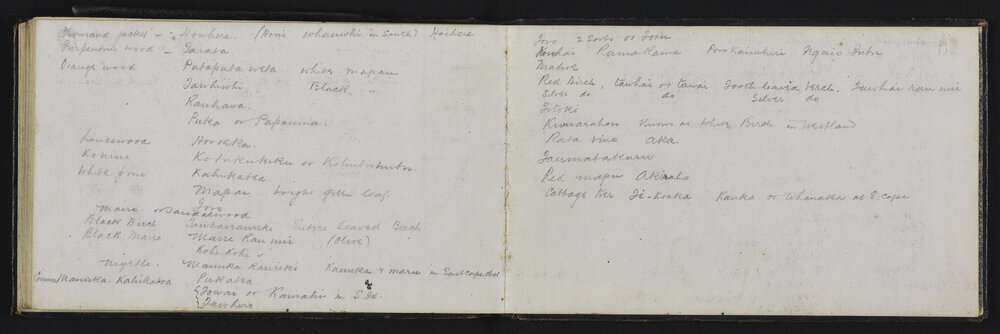 Thousand jacket - Houhere. (Honi whauwhi in South) Hoihere
Turpentine wood - Tarata
Orange wood Putaputa weta. white mapau
Tawhiwhi. Black "
Raukawa.
Puka or Papauma.
Lancewood Horoeka.
Konini Kotukutuku or Kohutuhutu
White pine Kahikatea
Mapau bright green leaf.
Toro
Maire or Sandalwood
Black Birch Tawhairauriki Entire leaved Beech
Black Maire Maire Rau nui (Olive)
Kohe Kohe
Myrtle. Manuka Rauriki Kanuka & maru in East cape dist
Common Manuka. Kahikatoa Pukatea
Towai or Kamahi in S. Id.
Tawhero
Toro 2 sorts or Toru
Kowhai Ramarama Porokaiwhiri Ngaio Tutu
Matwe
Red Birch, tawhai or tawai Tooth leaved birch. Tawhai rau nui
Silver do do Silver do
Titoki
Kumarahou Known as White Birch in Westland
Rata vine aka.
Taumatakuru
Red mapu Akiraho
Cabbage tree Ti-Kouka Kauka or Whanake at E. Cape